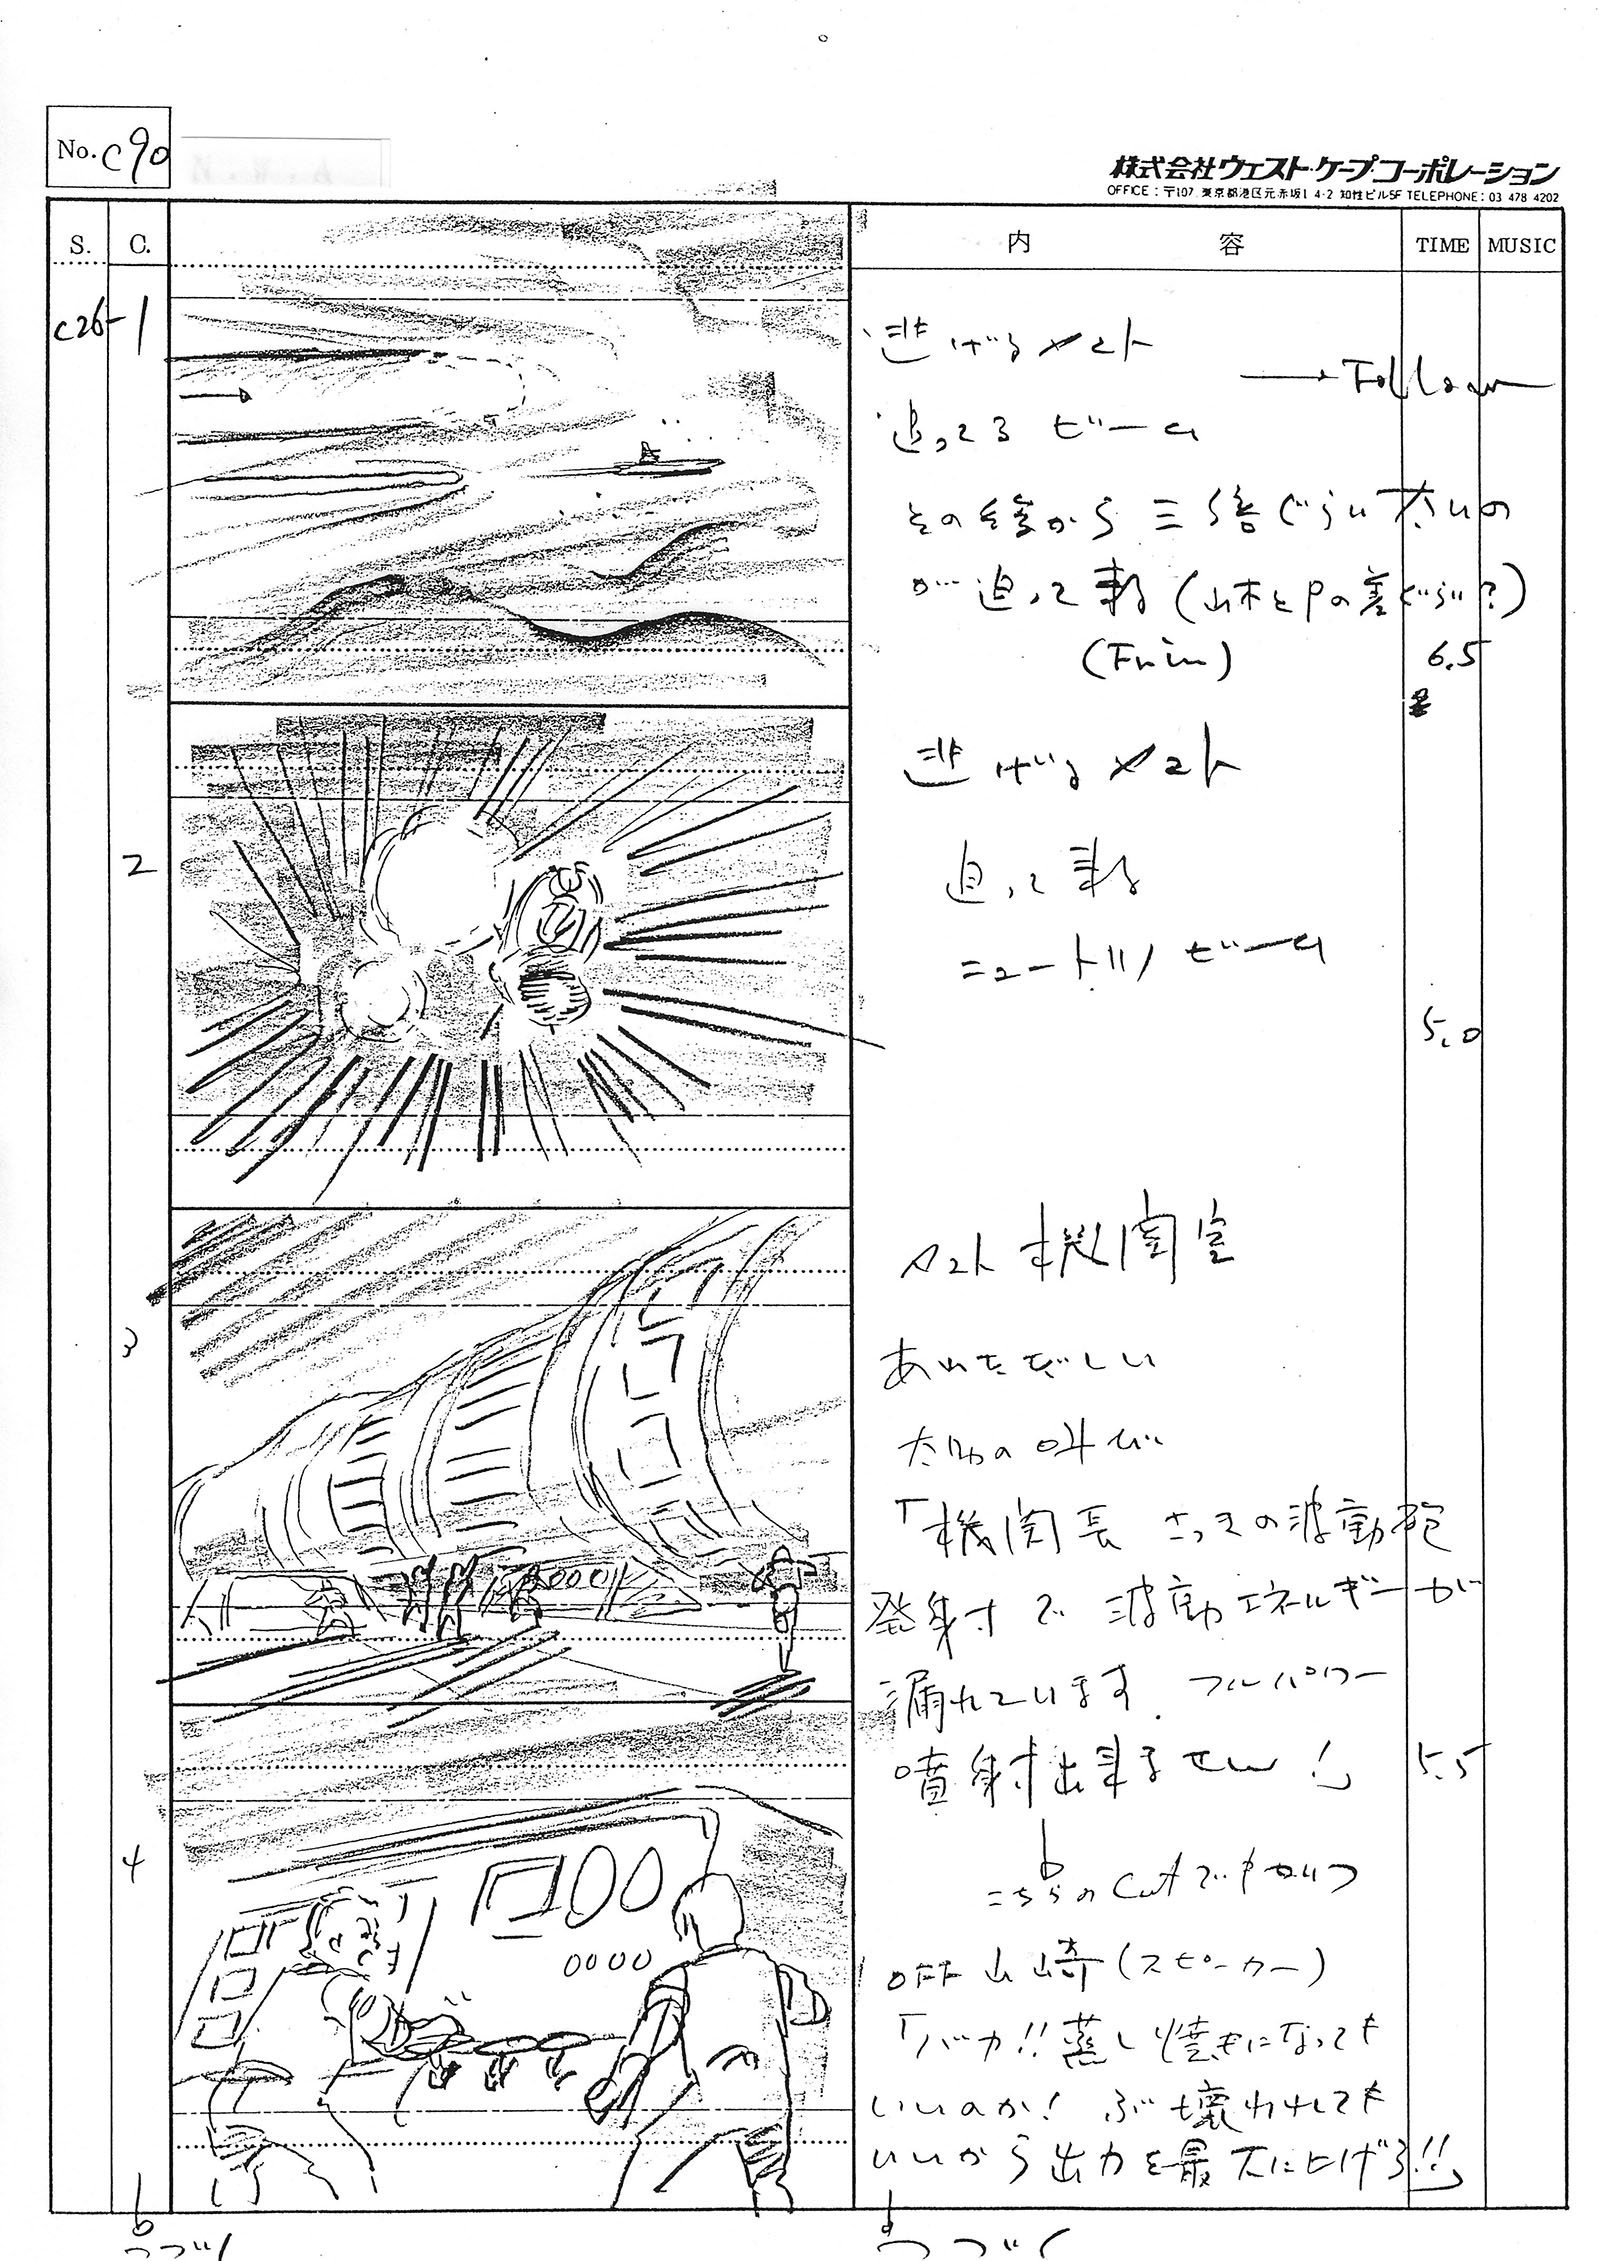 No. C90
株式会社ウェスト・ケープ・コーポレーション
OFFICE：〒107 東京都港区元赤坂1 4-2 知性ビル5F TELEPHONE：03 478 4202
S. C. 内 容 TIME MUSIC
C26-1
逃げるヤマト
→ Follow
追ってる ビーム
その後から 三倍ぐらい太いの
が追って来る (山本とPの差ぐらい?)
(Fr in) 6.5
2
逃げるヤマト
追って来る
ニュートリノ ビーム
5.0
3
ヤマト 機関室
あわただしい
太助の叫び
「機関長 さっきの波動砲
発射で 波動エネルギーが
漏れています フルパワー
噴射出来ません!」 5.5
4
こちらのCutで
OFF 山崎 (スピーカー)
「バカ!! 蒸し焼きになっても
いいのか! ぶち壊れてても
いいから 出力を最大に上げろ!!」
つづく つづく